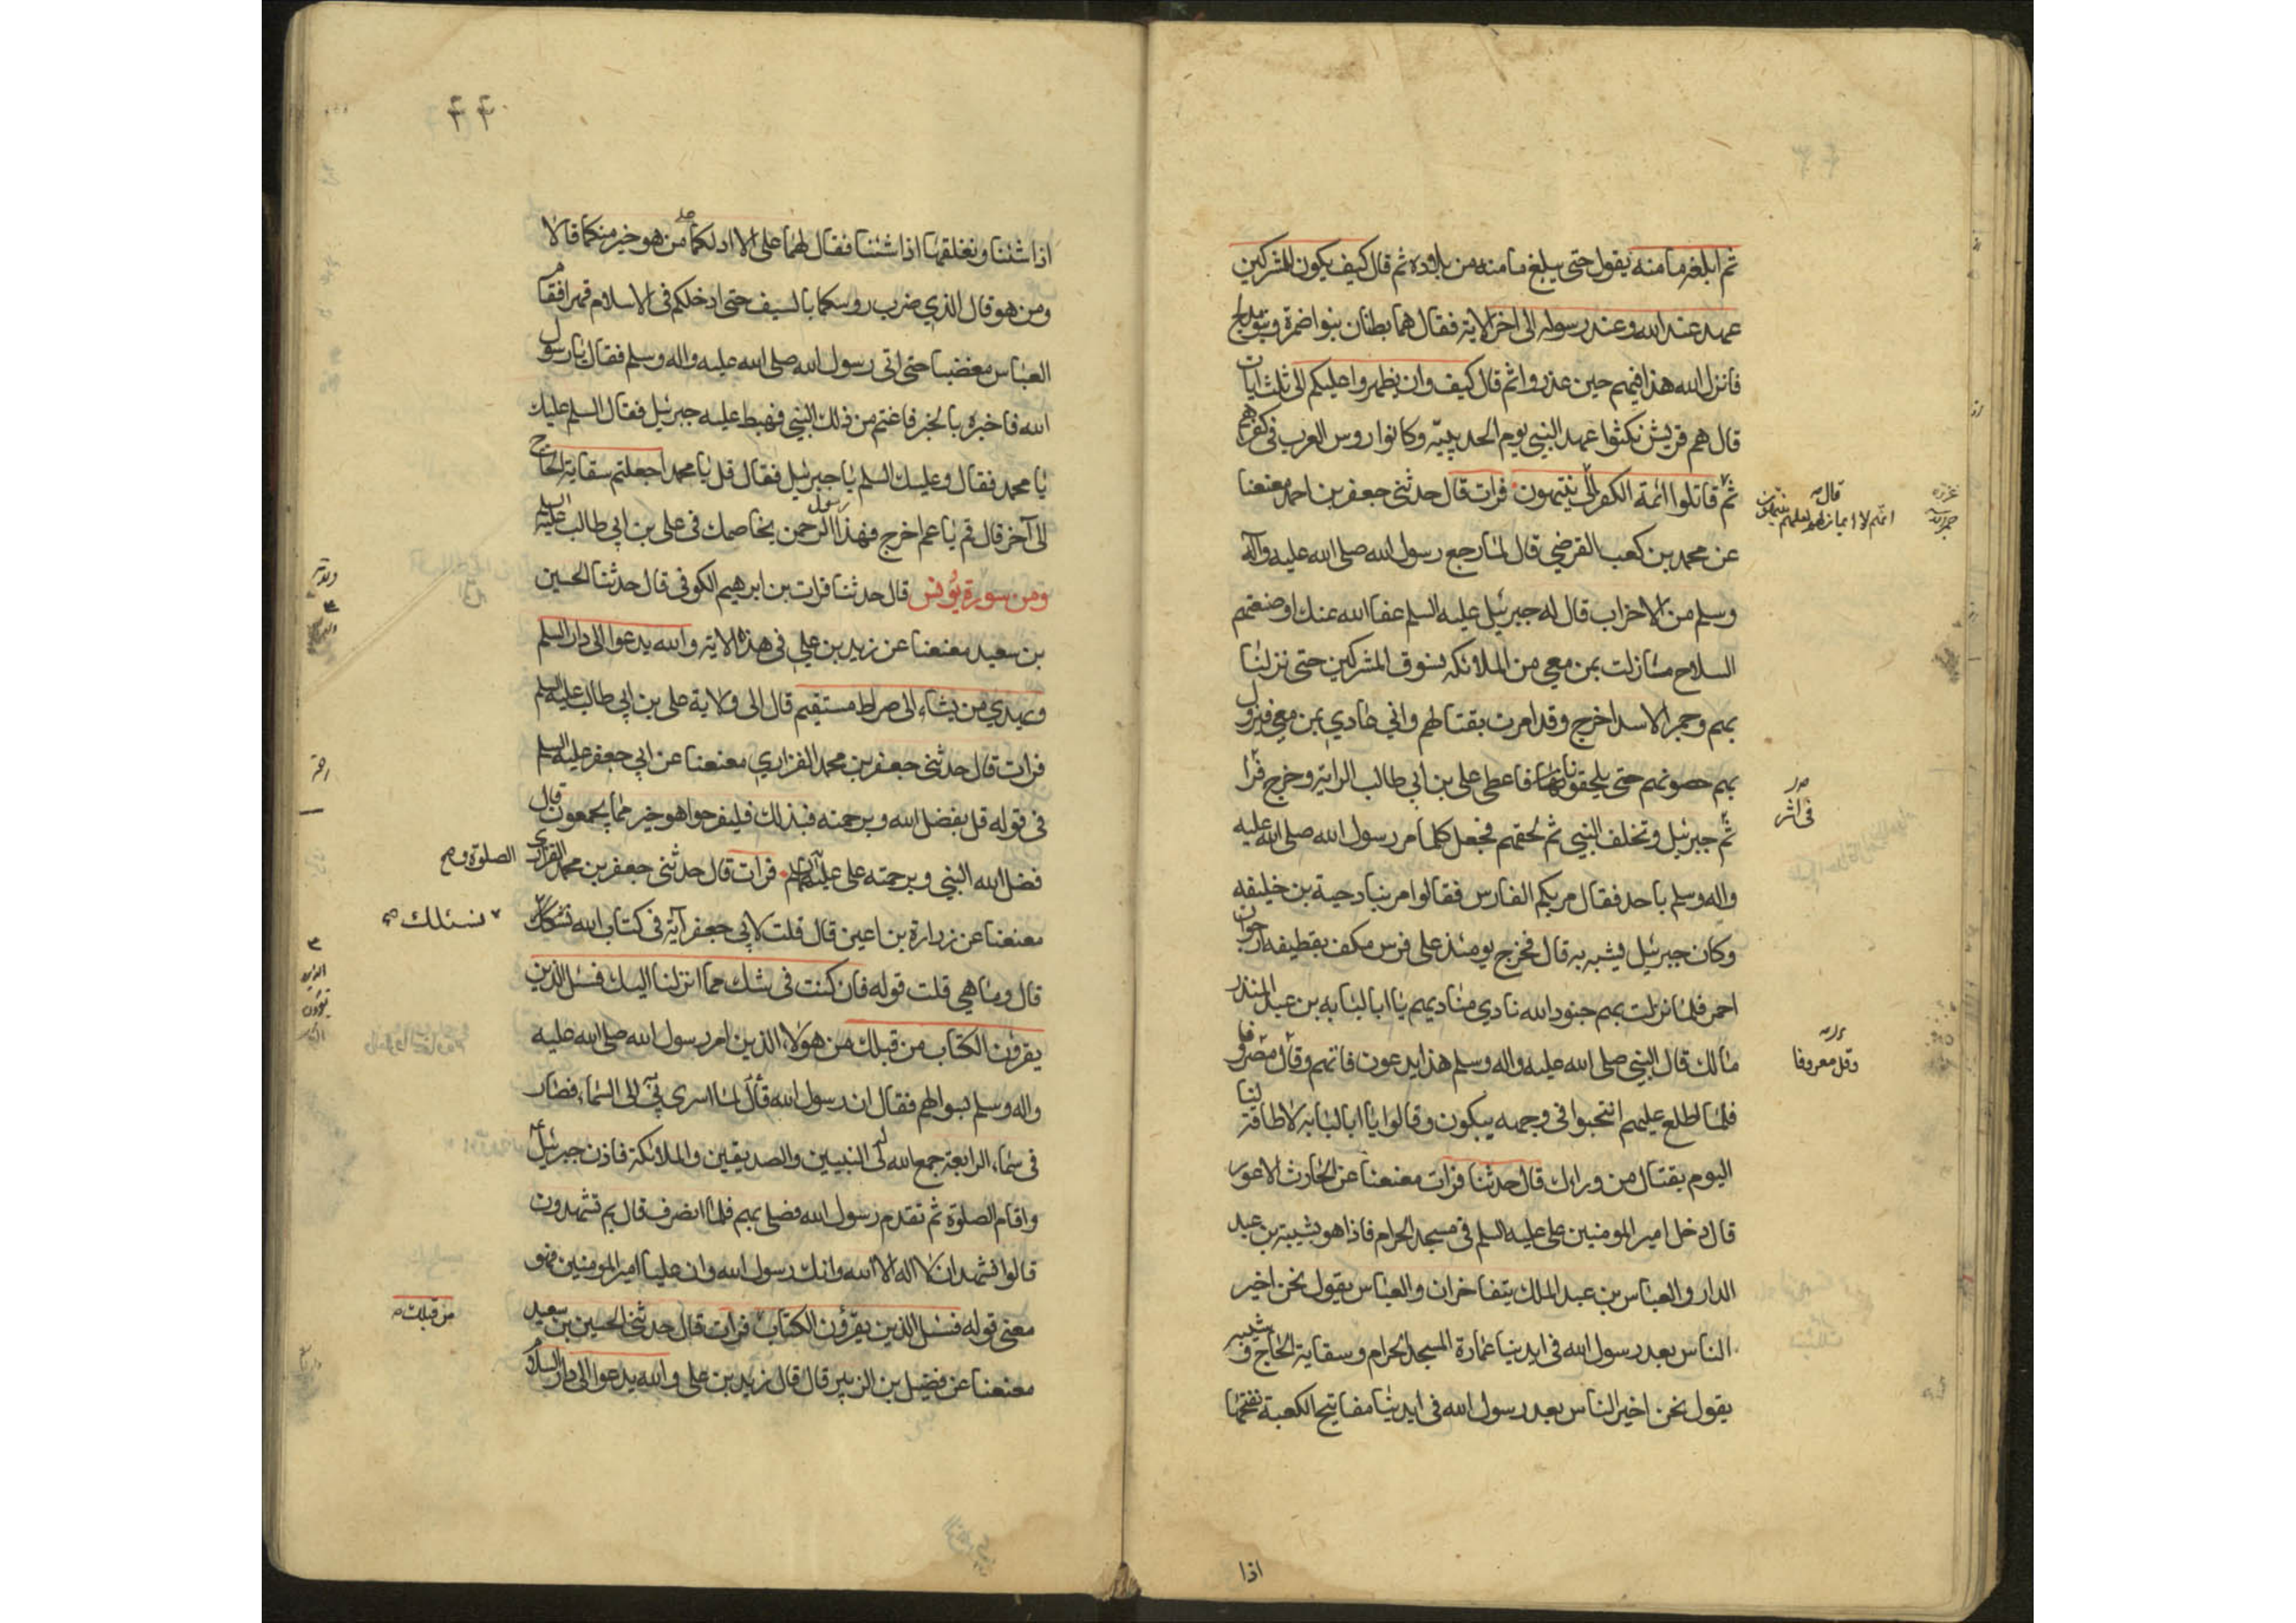 ثم ابلغه مامنه يقول حتى يبلغ مامنه من بلاده ثم قال كيف يكون للمشركين
عهد عند الله وعند رسوله الى اخر الاية فقال هما بطنان بنوا ضمرة وبنو مدلج
فانزل الله هذا فيهم حين غدروا ثم قال كيف وان يظهروا عليكم الى ثلث ايات
قال هم قريش نكثوا عهد النبي يوم الحديبيّه وكانوا روس العرب في كفرهم
ثم قاتلوا ائمة الكفر الى ينتهون فرات قال حدثنى جعفر بن احمد معنعنا
قال انهم لا ايمان لهم لعلهم ينتهون
عن محمد بن كعب القرضي قال لما رجع رسول الله صلى الله عليه وآله
وسلم من الاخراب قال له جبرئيل عليه السلم عفا الله عنك اوضعتم
السلاح مازلت بمن معي من الملائكه نسوق المشركين حتى نزلنا
بهم وحمر الاسد اخرج وقد امرت بقتالهم واني غادي بمن معي فنزول
بهم حصونهم حتى يلحقونا فاعطى على بن ابي طالب الراية وخرج
فى اثر
ثم جبرئيل وتخلف النبي ثم لحقهم فجعل كلما مر رسول الله صلى الله عليه
واله وسلم باحد فقال مر بكم الفارس فقالوا مر بنا دحية بن خليفه
وكان جبرئيل يشبه به قال فخرج يومئذ على فرس مكف بقطيفه ارجوان
احمر فلما نزلت بهم جنود الله نادي مناديهم يا ابا لبابه بن عبد المنذر
مالك قال النبي صلى الله عليه واله وسلم هذا يدعون فاتهم وقال معروفا
وقل معروفا
فلما اطلع عليهم انتحبوا في وجهه يبكون وقالوا يا ابا لبابه لا طاقة لنا
اليوم بقتال من وراءك قال حدثنا فرات معنعنا عن الحارث الاعور
قال دخل امير المومنين على عليه السلم في مسجد الحرام فاذا هو بشيبة بن عبد
الدار والعباس بن عبد الملك يتفاخران والعباس يقول نحن اخير
الناس بعد رسول الله في ايدينا عمارة المسجد الحرام وسقاية الحاج وشيبه
يقول نحن اخير الناس بعد رسول الله في ايدينا مفاتيح الكعبة نفتحها
اذا
اذا شئنا ونغلقها اذا شئنا فقال لهما على الا ادلكما من هو خير منكما قالا
ومن هو قال الذي ضرب روسكما بالسيف حتى ادخلكم في الاسلام قهرا فقام
العباس مغضبا حتى اتى رسول الله صلى الله عليه واله وسلم فقال يا رسول
الله فاخبره بالخبر فاغتم من ذلك النبي فهبط عليه جبرئيل فقال السلم عليك
يا محمد فقال وعليك السلم يا جبرئيل فقال قل يا محمد اجعلتم سقاية الحاج
الى آخر قال قم يا عم اخرج فهذا رسول الرحمن يخاصمك في على بن ابي طالب عليه السلم
ومن سورة يونس قال حدثنا فرات بن ابرهيم الكوفى قال حدثنا الحسين
بن سعيد معنعنا عن زيد بن علي في هذه الاية والله يدعوا الى دار السلم
ويهدي من يشاء الى صراط مستقيم قال الى ولاية على بن ابي طالب عليه السلم
فرات قال حدثنى جعفر بن محمد الفزاري معنعنا عن ابي جعفر عليه السلم
في قوله قل بفضل الله وبرحمته فبذلك فليفرحوا هو خير مما يجمعون قال
فضل الله النبي وبرحمته على عليهما السلم فرات قال حدثنى جعفر بن محمد الفزاري
الصلوة و
معنعنا عن زرارة بن اعين قال قلت لابي جعفر آية في كتاب الله نشكك
نسئلك
قال وما هي قلت قوله فان كنت في شك مما انزلنا اليك فسئل الذين
يقرؤن الكتاب من قبلك من هؤلاء الذين امر رسول الله صلى الله عليه
واله وسلم بسوالهم فقال ان رسول الله قال لما اسرى بي الى السماء فصار
في سماء الرابعة جمع الله لى النبيين والصديقين والملائكة فاذن جبرئيل
واقام الصلوة ثم تقدم رسول الله فصلى بهم فلما انصرف قال بم تشهدون
قالوا نشهد ان لا اله الا الله وانك رسول الله وان عليا امير المومنين فهو
معنى قوله فسئل الذين يقرؤن الكتاب فرات قال حدثنى الحسين بن سعيد
من قبلك
معنعنا عن فضيل بن الزبير قال قال زيد بن على والله يدعوا الى دار السلام